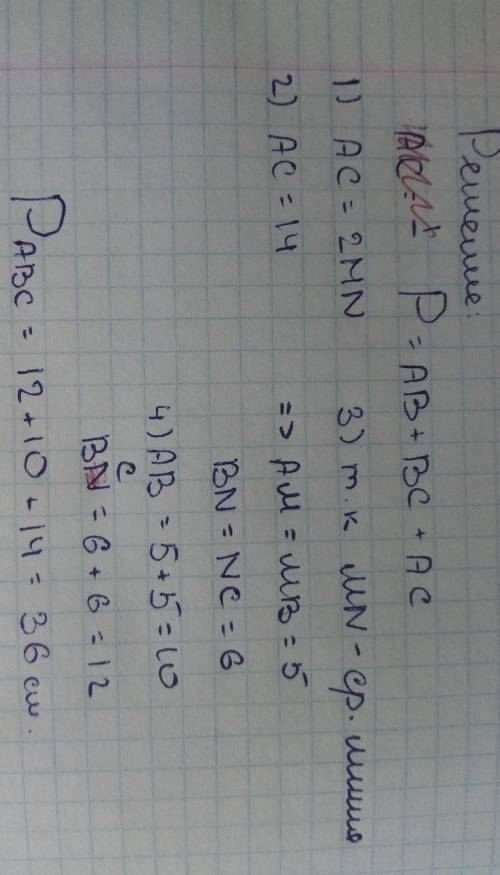 Решение:
P = AB + BC + AC
1) AC = 2MN
2) AC = 14
3) т.к MN - ср. линия
=> AM = MB = 5
BN = NC = 6
4) AB = 5+5 = 10
BC = 6+6 = 12
PABC = 12+10+14 = 36 см.